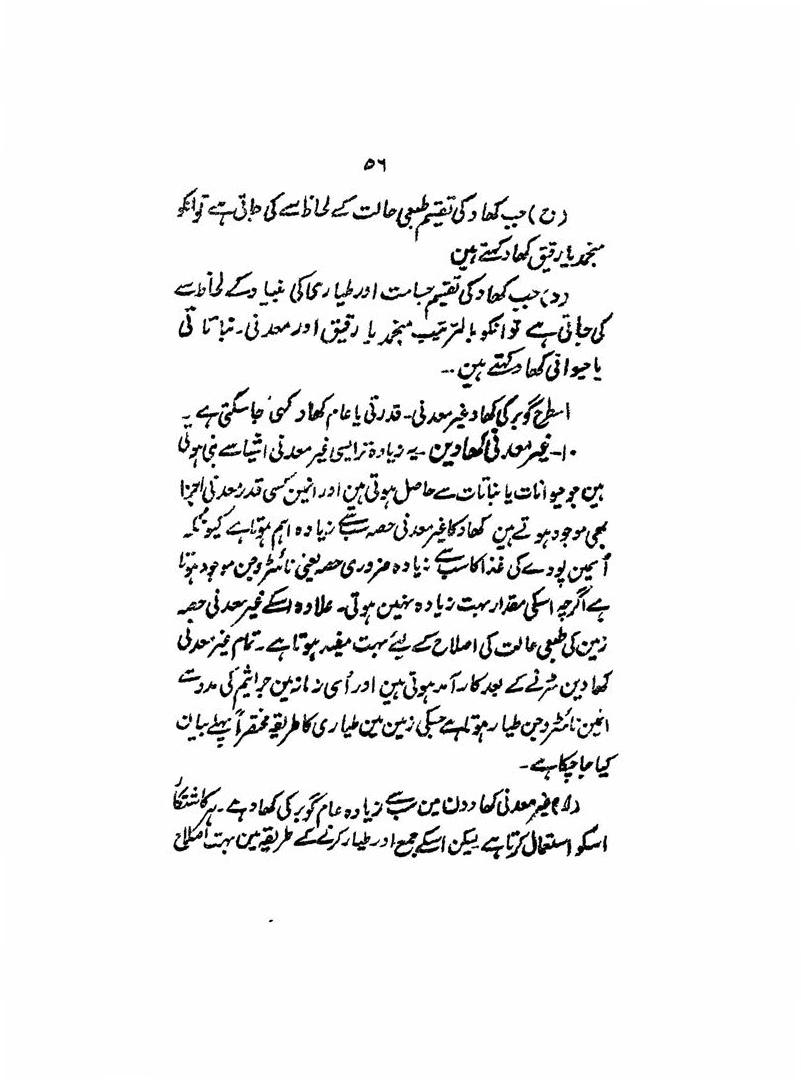 ۵۶
(ج) جب کھاد کی تقسیم طبعی حالت کے لحاظ سے کی جاتی ہے تو انکو
منجمد یا رقیق کھاد کہتے ہین
(د) جب کھاد کی تقسیم جسامت اور طیاری کی بنیاد کے لحاظ سے
کی جاتی ہے تو انکو بالترتیب منجمد یا رقیق اور معدنی۔ نباتاتی
یا حیوانی کھاد کہتے ہین۔۔
اسطرح گوبر کی کھاد غیر معدنی۔ قدرتی یا عام کھاد کہی جا سکتی ہے۔
۱۰۔ غیر معدنی کھادین۔ یہ زیادہ تر ایسی غیر معدنی اشیا سے بنی ہوتی
ہین جو حیوانات یا نباتات سے حاصل ہوتی ہین اور انمین کسی قدر معدنی اجزا
بھی موجود ہوتے ہین کھاد کا غیر معدنی حصہ سب سے زیادہ اہم ہوتا ہے کیونکہ
اُسمین پودے کی غذا کا سب سے زیادہ ضروری حصہ یعنی نائٹروجن موجود ہوتا
ہے اگرچہ اسکی مقدار بہت زیادہ نہین ہوتی۔ علاوہ اسکے غیر معدنی حصہ
زمین کی طبعی حالت کی اصلاح کے لیے بہت مفید ہوتا ہے۔ تمام غیر معدنی
کھادین سڑنے کے بعد کار آمد ہوتی ہین اور اُسی زمانہ مین جراثیم کی مدد سے
انمین نائٹروجن طیار ہوتا ہے جسکی زمین مین طیاری کا طریقہ مختصراً پہلے بیان
کیا جا چکا ہے۔
(۱) غیر معدنی کھادون مین سب سے زیادہ عام گوبر کی کھاد ہے۔ ہر کاشتکار
اسکو استعمال کرتا ہے لیکن اسکے جمع اور طیار کرنے کے طریقہ مین بہت اصلاح